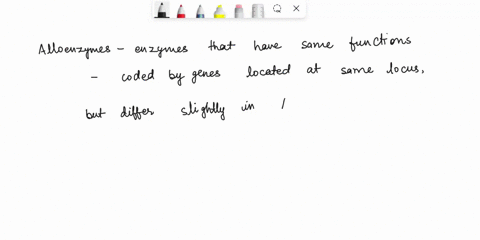 Alloenzymes - enzymes that have same functions
- coded by genes located at same locus,
but differ slightly in